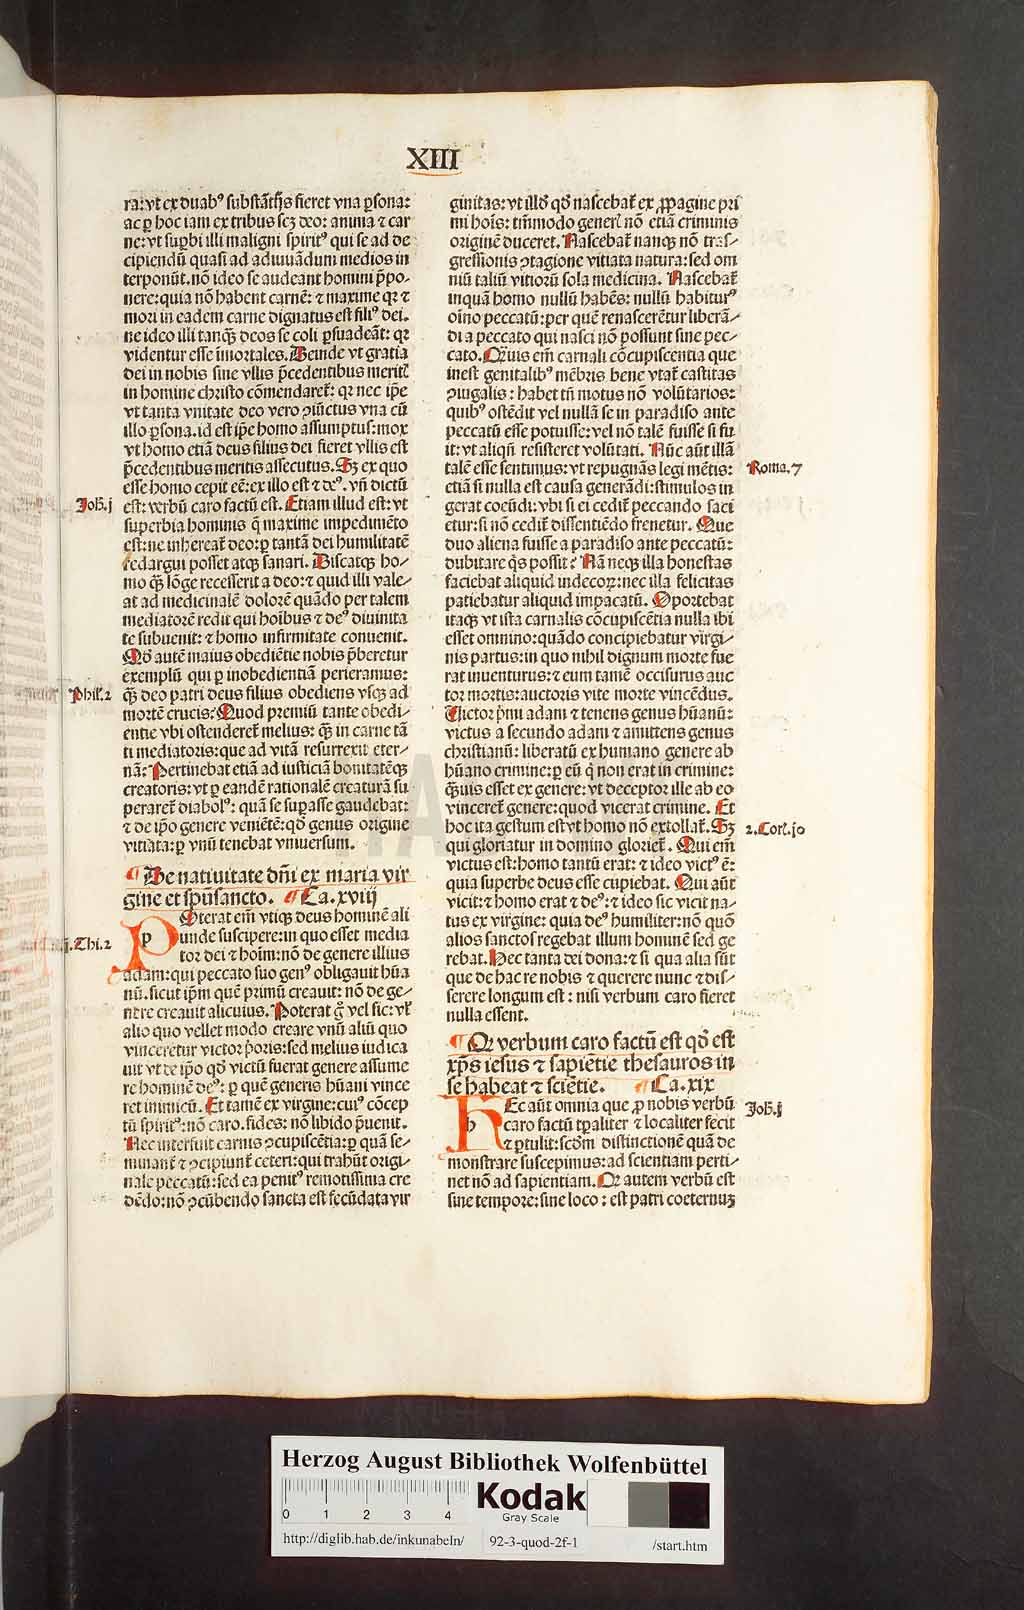 XIII
ra: vt ex duabꝰ substātijs fieret vna ꝑsona:
ac ꝑ hoc iam ex tribus scꝫ deo: anima ⁊ car
ne: vt suꝑbi illi maligni spiritꝰ qui se ad de
cipiendū quasi ad adiuuādum medios in
terponūt. nō ideo se audeant homini p̄po-
nere: quia nō habent carnē: ⁊ maxime qꝛ ⁊
mori in eadem carne dignatus est filiꝰ dei.
ne ideo illi tanqꝫ deos se coli ꝑsuadeāt: qꝛ
videntur esse īmortales. Deinde vt gratia
dei in nobis sine vllis p̄cedentibus meritꝭ
in homine christo cōmendaret̄: qꝛ nec ip̄e
vt tanta vnitate deo vero ↄiūctus vna cū
illo ꝑsona. id est ip̄e homo assumptus: mox
vt homo etiā deus filius dei fieret vllis est
p̄cedentibus meritis assecutus. Sꝫ ex quo
esse homo cepit eē: ex illo est ⁊ deꝰ. vn̄ dictū
Joh̄. j
est: verbū caro factū est. Etiam illud est: vt
superbia hominis q̄ maxime impedimēto
est: ne inhereat̄ deo: ꝑ tantā dei humilitatē
redargui posset atqꝫ sanari. Discatqꝫ ho-
mo qꝫ lōge recesserit a deo: ⁊ quid illi vale-
at ad medicinalē dolorē quādo per talem
mediatorē redit qui hoībus ⁊ deꝰ diuinita
te subuenit: ⁊ homo infirmitate conuenit.
Qd̄ autē maius obediētie nobis p̄beretur
exemplū qui ꝑ inobedientiā perieramus:
Phil̓. 2
qꝫ deo patri deus filius obediens vsqꝫ ad
mortē crucis? Quod premiū tante obedi-
entie vbi ostenderet̄ melius: qꝫ in carne tā
ti mediatoris: que ad vitā resurrexit eter-
nā? Pertinebat etiā ad iusticiā bonitatēqꝫ
creatoris: vt ꝑ eandē rationalē creaturā su
peraret̄ diabolꝰ: quā se suꝑasse gaudebat:
⁊ de ip̄o genere veniētē: qd̄ genus origine
vitiata: ꝑ vnū tenebat vniuersum.
¶ De natiuitate dn̄i ex maria vir
gine et spū sancto. ¶ Ca. xviij
POterat em̄ vtiqꝫ deus hominē ali
j. Thi. 2
unde suscipere: in quo esset media
tor dei ⁊ hoīm: nō de genere illius
adam: qui peccato suo genꝰ obligauit hūa
nū. sicut ip̄m quē primū creauit: nō de ge-
nere creauit alicuius. Poterat g̊ vel sic: vl̓
alio quo vellet modo creare vnū aliū quo
vinceretur victor p̄oris: sed melius iudica
uit vt de ip̄o qd̄ victū fuerat genere assume
re hominē deꝰ: ꝑ quē generis hūani vince
ret inimicū. Et tamē ex virgine: cuiꝰ cōcep
tū spiritꝰ: nō caro. fides: nō libido p̄uenit.
Nec interfuit carnis ↄcupiscētia: ꝑ quā se-
minant̄ ⁊ ↄcipiunt̄ ceteri: qui trahūt origi-
nale peccatū: sed ea penitꝰ remotissima cre
dēdo: nō ↄcūbendo sancta est fecūdata vir
ginitas: vt illd̓ qd̄ nascebat̄ ex ꝓpagine pri
mi hoīs: tm̄modo generꝭ nō etiā criminis
originē duceret. Nascebat̄ nanqꝫ nō trās-
gressionis ↄtagione vitiata natura: sed om
niū taliū vitiorū sola medicina. Nascebat̄
inquā homo nullū habēs: nullū habiturꝰ
oīno peccatū: per quē renascerētur liberā-
di a peccato qui nasci nō possunt sine pec-
cato. Qꝫuis em̄ carnali cōcupiscentia que
inest genitalibꝰ mēbris bene vtat̄ castitas
ↄiugalis: habet tn̄ motus nō volūtarios:
quibꝰ ostēdit vel nullā se in paradiso ante
peccatū esse potuisse: vel nō talē fuisse si fu
it: vt aliqn̄ resisteret volūtati. Nūc aūt illā
talē esse sentimus: vt repugnās legi mētis:
Roma. 7
etiā si nulla est causa generādi: stimulos in
gerat coeūdi: vbi si ei cedit̄ peccando saci
etur: si nō cedit̄ dissentiēdo frenetur. Que
duo aliena fuisse a paradiso ante peccatū:
dubitare q̇s possit? Nā neqꝫ illa honestas
faciebat aliquid indecoꝝ: nec illa felicitas
patiebatur aliquid impacatū. Oportebat
itaqꝫ vt ista carnalis cōcupiscētia nulla ibi
esset omnino: quādo concipiebatur virgi-
nis partus: in quo nihil dignum morte fue
rat inuenturus: ⁊ eum tamē occisurus auc
tor mortis: auctoris vite morte vincēdus.
Uictor p̄mi adam ⁊ tenens genus hūanū:
victus a secundo adam ⁊ amittens genus
christianū: liberatū ex humano genere ab
hūano crimine: ꝑ eū q̇ non erat in crimine:
qꝫuis esset ex genere: vt deceptor ille ab eo
vinceret̄ genere: quod vicerat crimine. Et
hoc ita gestum est vt homo nō extollat̄. Sꝫ
2. Corꝭ. jo
qui gloriatur in domino gloriet̄. Qui em̄
victus est: homo tantū erat: ⁊ ideo victꝰ ē:
quia superbe deus esse cupiebat. Qui aūt
vicit: ⁊ homo erat ⁊ deꝰ: ⁊ ideo sic vicit na-
tus ex virgine: quia deꝰ humiliter: nō quō
alios sanctos regebat illum hominē sed ge
rebat. Hec tanta dei dona: ⁊ si qua alia sūt
que de hac re nobis ⁊ querere nunc ⁊ dis-
serere longum est: nisi verbum caro fieret
nulla essent.
¶ Qꝛ verbum caro factū est qd̄ est
xp̄s iesus ⁊ sapiētie thesauros in
se habeat ⁊ sciētie. ¶ Ca. xix
HEc aūt omnia que ꝓ nobis verbū
Joh̄. j
caro factū tꝑaliter ⁊ localiter fecit
⁊ ꝑtulit: scd̄m distinctionē quā de
monstrare suscepimus: ad scientiam perti-
net nō ad sapientiam. Qꝛ autem verbū est
sine tempore: sine loco: est patri coeternuꝫ
Herzog August Bibliothek Wolfenbüttel
0 1 2 3 4
Kodak
Gray Scale
http://diglib.hab.de/inkunabeln/ 92-3-quod-2f-1 /start.htm